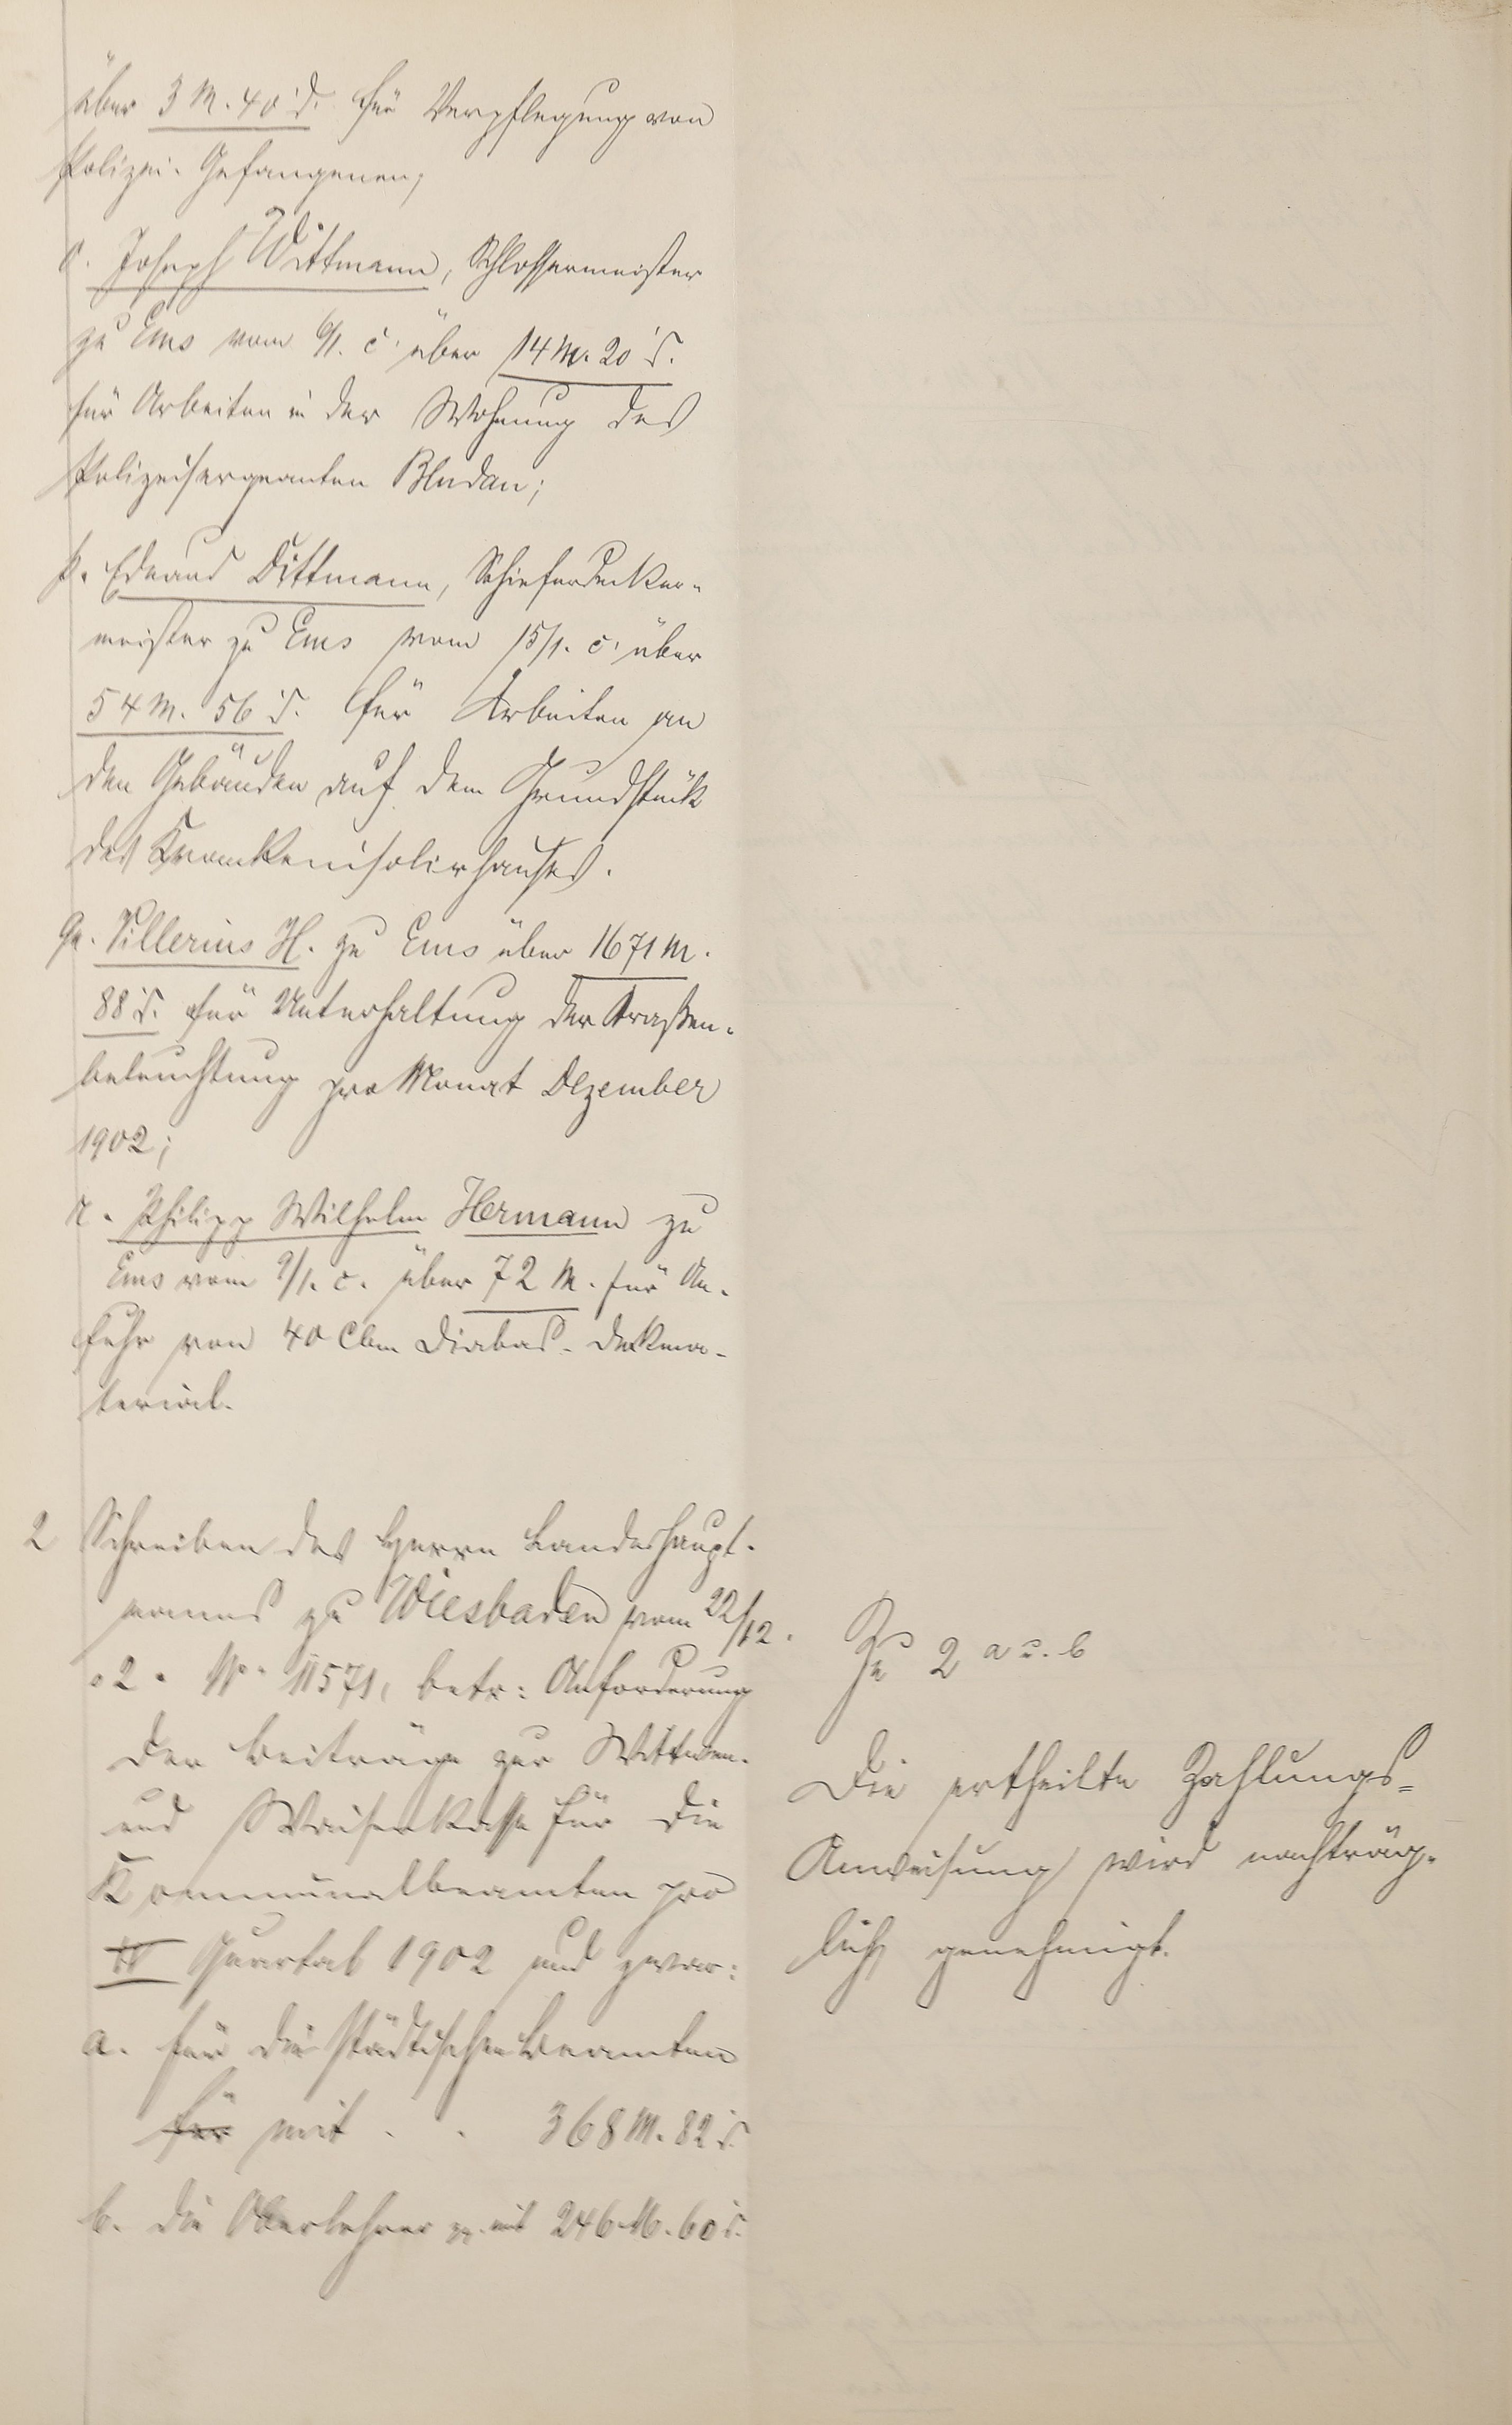 über 3 M. 40 d. für Verpflegung von
Polizei-Gefangenen;
o. Joseph Wittmann, Schlossermeister
zu Ems vom 6/1. c. über 14 M. 20 d.
für Arbeiten in der Wohnung des
Polizeisergeanten Bludau;
p. Eduard Dittmann, Schieferdecker-
meister zu Ems vom 15/1. c. über
54 M. 56 d. für Arbeiten an
den Gebäuden auf dem Grundstück
des Krankenisolirhauses.
q. Villerius H. zu Ems über 1671 M.
88 d. für Unterhaltung der Straßen-
beleuchtung pro Monat Dezember
1902;
r. Philipp Wilhelm Hermann zu
Ems vom 9/1. c. über 72 M. für An-
fuhr von 40 Cbm Diabas-Deckma-
terial.
2 Schreiben des Herrn Landeshaupt-
manns zu Wiesbaden vom 22/12.
02. No. 11571, betr: Anforderung
der Beiträge zur Wittwen-
und Waisenkasse für die
Kommunalbeamten pro
IV Quartal 1902 und zwar:
a. für die städtischen Beamten
für mit . . 368 M. 82 d.
b. die Oberlehrer pp. mit 246 M. 60 d.
Zu 2 a u. b
Die ertheilte Zahlungs-
Anweisung wird nachträg-
lich genehmigt.